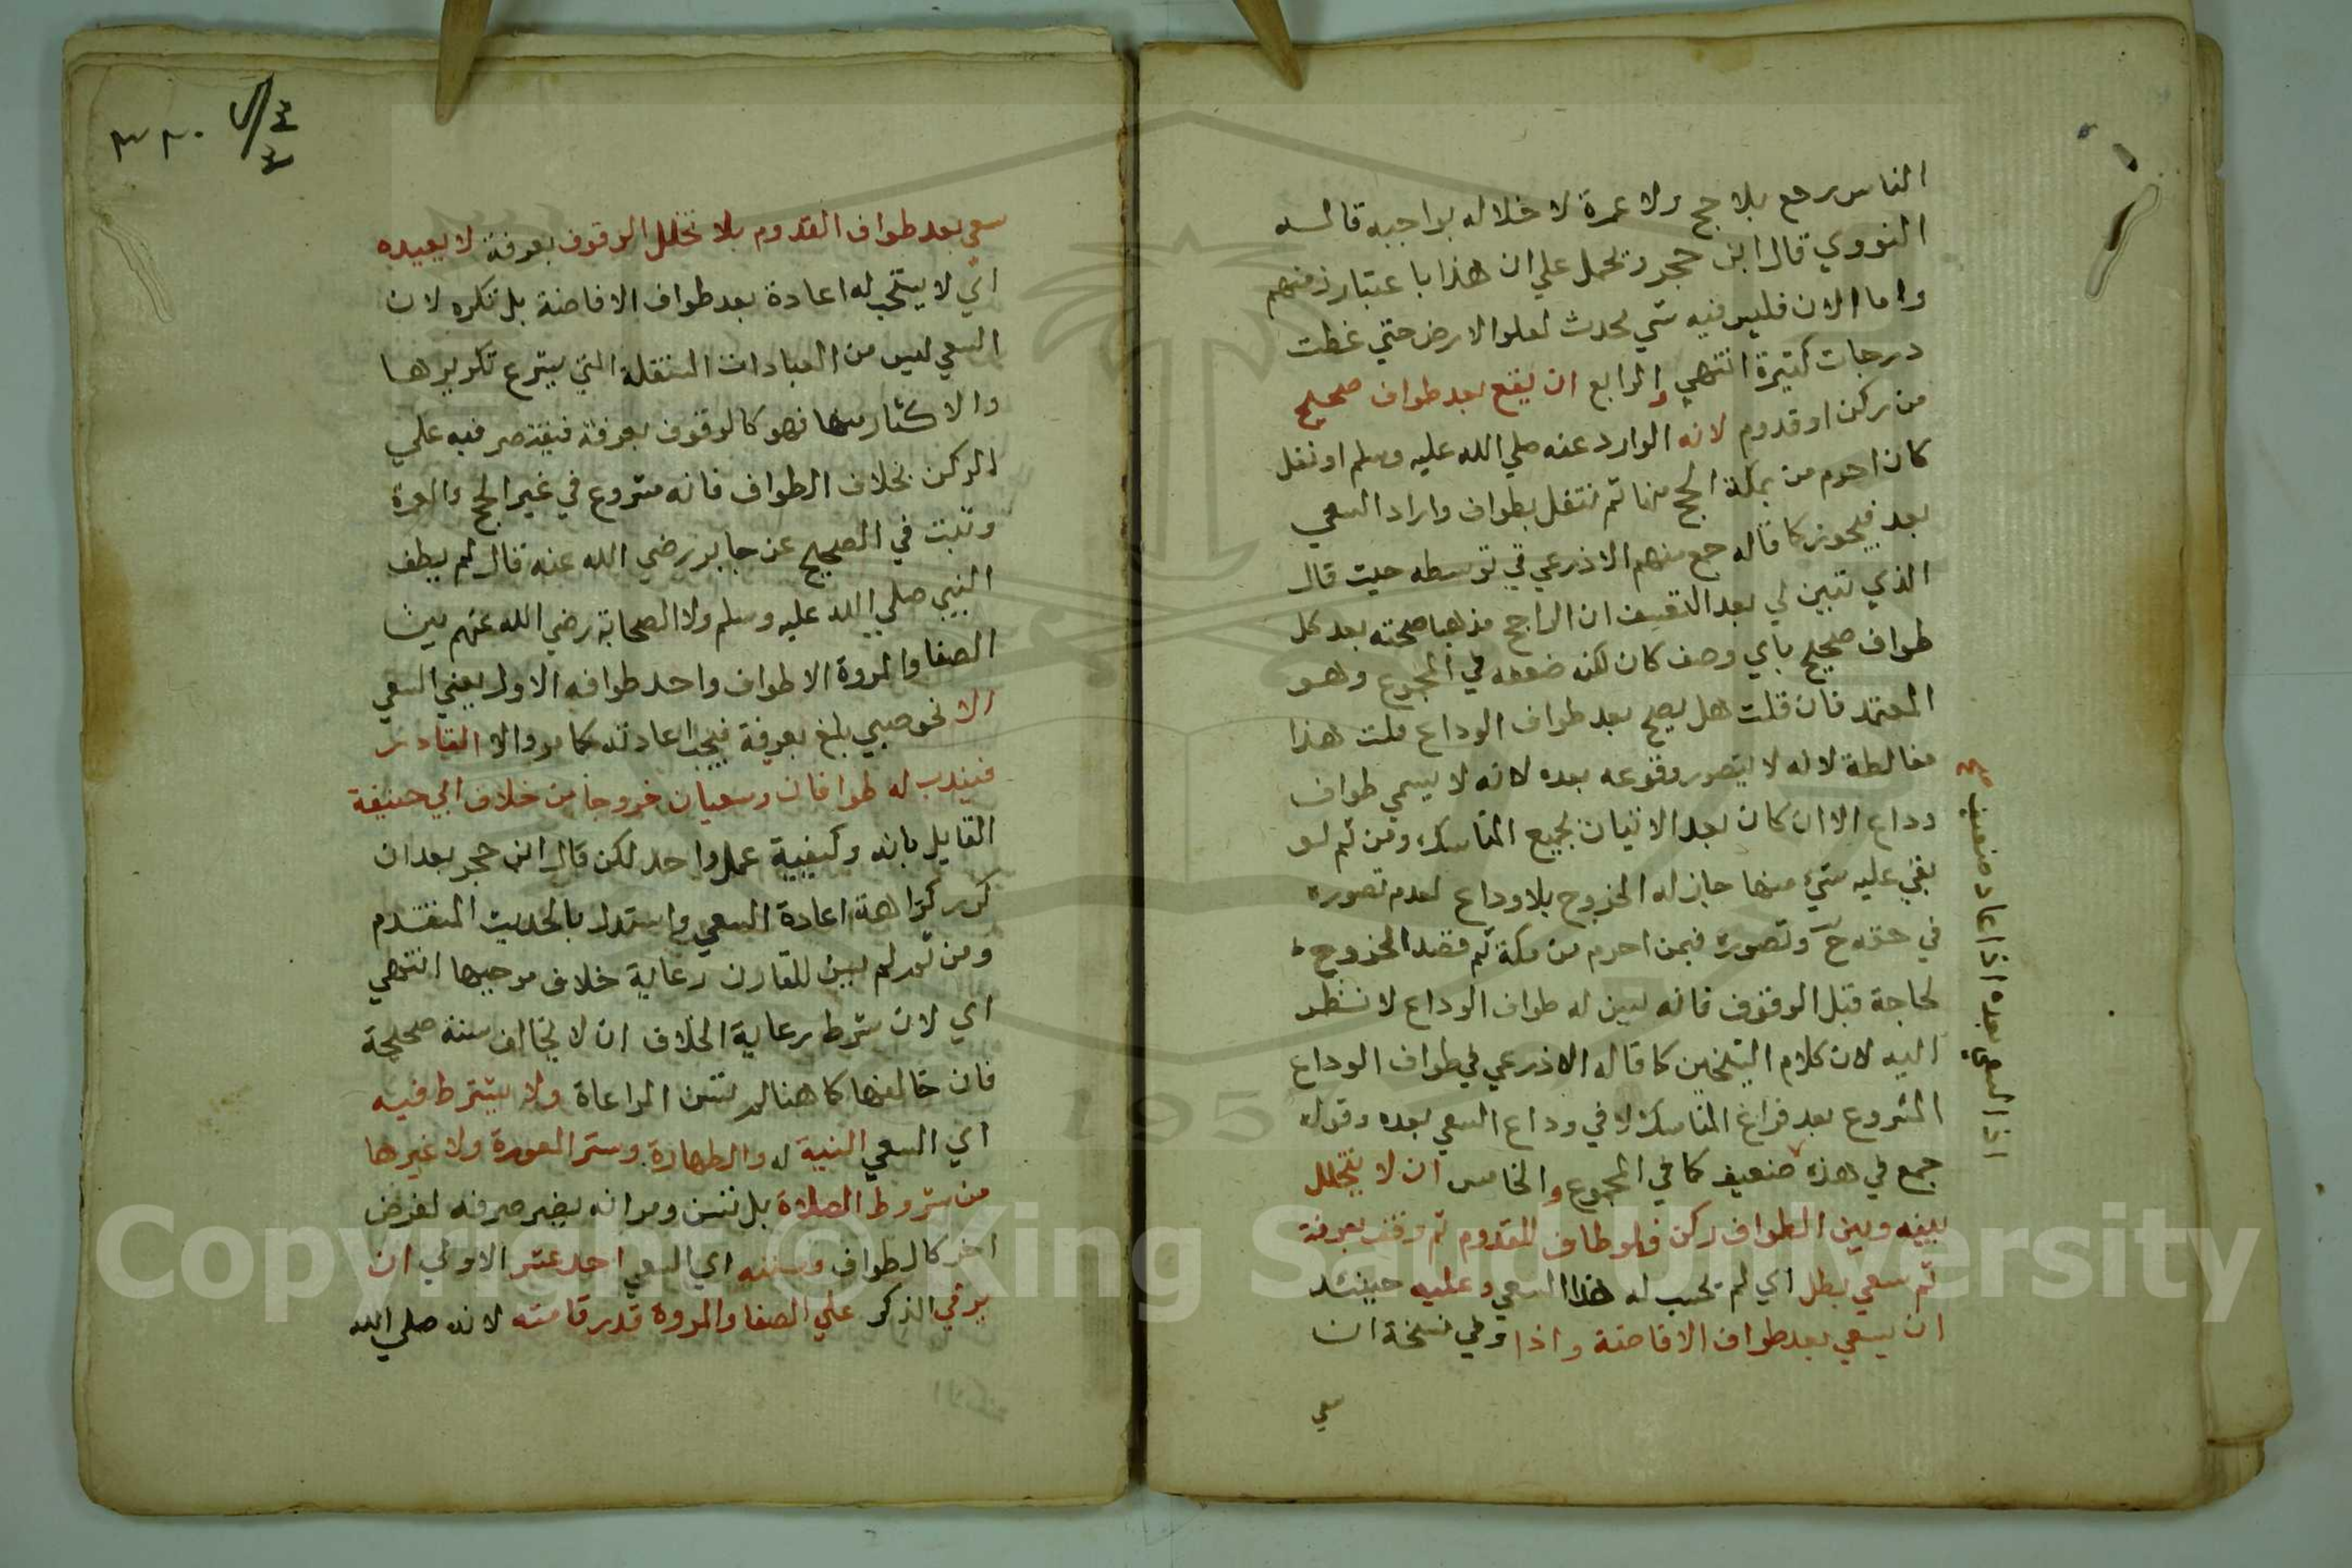 الناس رجع بلا حج ولا عمرة لاخلاله بواجبه قاله
النووي قال ابن حجر ويحمل علي ان هذا باعتبار زمنهم
واما الان فليس فيه شي يحدث لعلو الارض حتي غطت
درجات كثيرة انتهي والرابع ان يقع بعد طواف صحيح
من ركن او قدوم لانه الوارد عنه صلي الله عليه وسلم او نفل
كان احرم من بمكة الحج منها ثم تنفل بطواف واراد السعي
بعد فيجوز كما قاله جمع منهم الاذرعي في توسطه حيث قال
الذي تبين لي بعد التنقيب ان الراجح مذهبا صحته بعد كل
طواف صحيح باي وصف كان لكنه ضعفه في المجموع وهو
المعتمد فان قلت هل يصح بعد طواف الوداع قلت هذا
مغالطة لانه لا يتصور وقوعه بعده لانه لا يسمي طواف
وداع الا ان كان بعد الاتيان بجميع المناسك ومن ثم لو
بقي عليه شيء منها جاز له الخروج بلا وداع لعدم تصوره
في حقه ح وتصوره فيمن احرم من مكة ثم قصد الخروج
لحاجة قبل الوقوف فانه يسن له طواف الوداع لا نظر
اليه لان كلام الشيخين كما قاله الاذرعي في طواف الوداع
المشروع بعد فراغ المناسك لا في وداع السعي بعده وقول
جمع في هذه ضعيف كما في المجموع والخامس ان لا يتخلل
بينه وبين الطواف ركن فلو طاف للقدوم ثم وقف بعرفة
ثم سعي بطل اي لم يحسب له هذا السعي وعليه حينئذ
ان يسعي بعد طواف الافاضة واذا وفي نسخة ان
سعي
اذا السعي بعده اذا عاد ضعيف
٣٢٠
سعي بعد طواف القدوم بلا تخلل الوقوف بعرفة لا يعيده
اي لا يستحب له اعادة بعد طواف الافاضة بل تكره لان
السعي ليس من العبادات المستقلة التي يشرع تكريرها
والاكثار منها فهو كالوقوف بعرفة فيقتصر فيه علي
الركن بخلاف الطواف فانه مشروع في غير الحج والعمرة
وثبت في الصحيح عن جابر رضي الله عنه قال لم يطف
النبي صلي الله عليه وسلم ولا الصحابة رضي الله عنهم بين
الصفا والمروة الا طواف واحد طوافه الاول يعني السعي
الا نحو صبي بلغ بعرفة فيجب اعادته كما مر والا القادر
فيندب له طوافان وسعيان خروجا من خلاف ابي حنيفة
القايل بانه وكيفية عمل واحد لكن قال ابن حجر بعد ان
كرر كراهة اعادة السعي واستدل بالحديث المتقدم
ومن ثم لم يسن للقارن رعاية خلاف موجبها انتهي
اي لان شرط رعاية الخلاف ان لا يخالف سنة صحيحة
فان خالفها كما هنا لم تسن المراعاة ولا يشترط فيه
اي السعي النية له والطهارة وستر العورة ولا غيرها
من شروط الصلاة بل تسن ومر انه يضر صرفه لغرض
اخر كالطواف وسننه اي السعي احد عشر الاولي ان
يرقي الذكر علي الصفا والمروة قدر قامته لانه صلي الله
Copyright © King Saud University
195